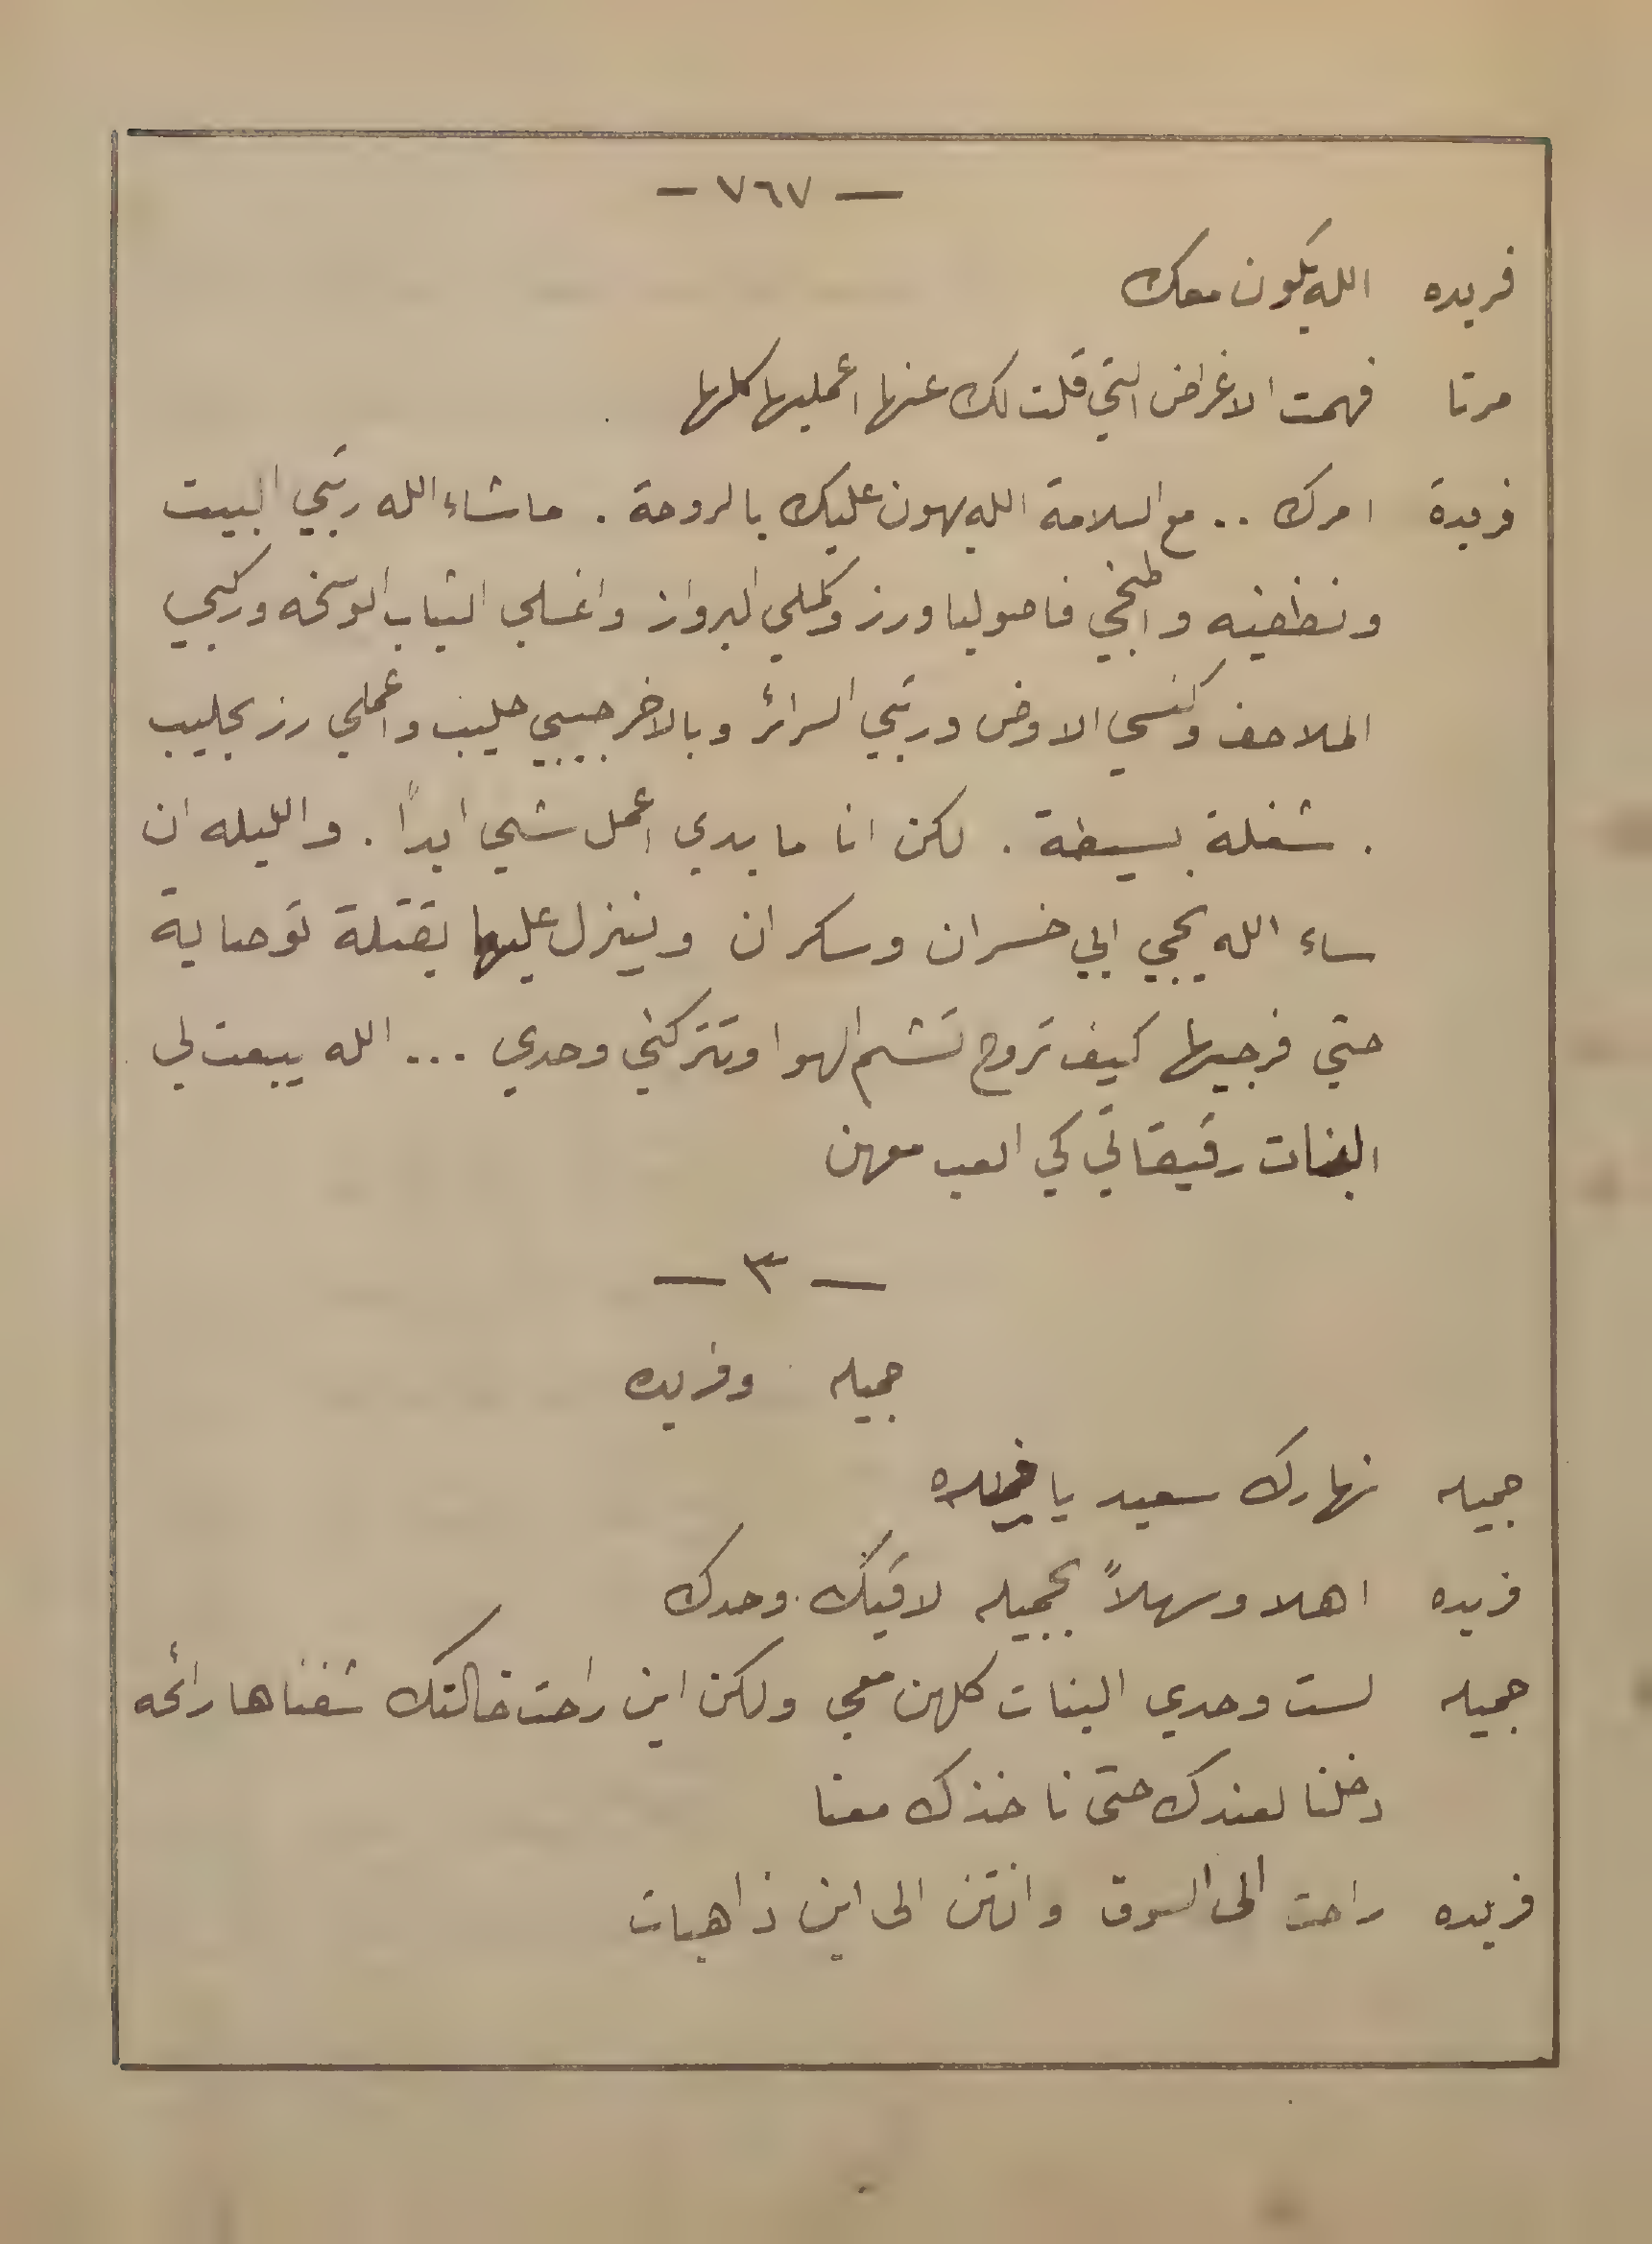 — ٧٦٧ —
فريده الله يكون معك
مرتا فهمت الاغراض التي قلت لك عنها اعمليها كلها
فريدة امرك .. مع السلامة الله يهون عليك بالروحة . ماشاء الله رتبي البيت
ونظفيه واطبخي فاصوليا ورز وكملي البرواز واغسلي الثياب الوسخه وركبي
الملاحف وكنسي الاوض ورتبي السرائر وبالاخر جيبي حليب واعملي رز بحليب
. شغلة بسيطة . لكن انا ما بدي اعمل شي ابداً . والليله ان
ساء الله يجي ابي خسران وسكران وينزل عليها بقتلة توصاية
حتي فرجيها كيف تروح تشم الهوا وتتركني وحدي ... الله يبعت لي
البنات رفيقاتي كي العب معهن
— ٣ —
جميله وفريده
جميله نهارك سعيد يا فريده
فريده اهلا وسهلاً بجميله لاقيتك وحدك
جميله لست وحدي البنات كلهن معي ولكن اين راحت خالتك شفناها رائحه
دخلنا لعندك حتى ناخذك معنا
فريده راحت الى السوق وانتن الى اين ذاهبات